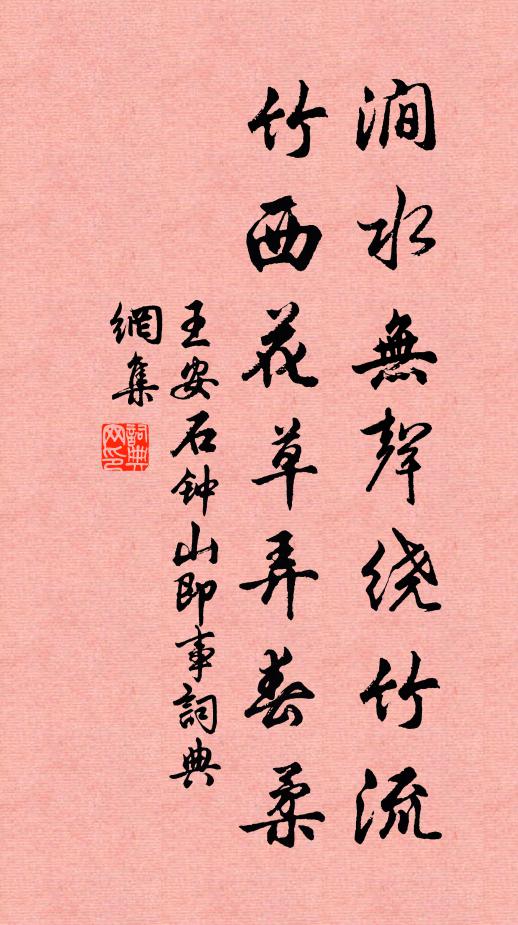 澗水無聲绕竹流
竹西花草弄春柔
王安石钟山即事詞典
網集
詞典網印